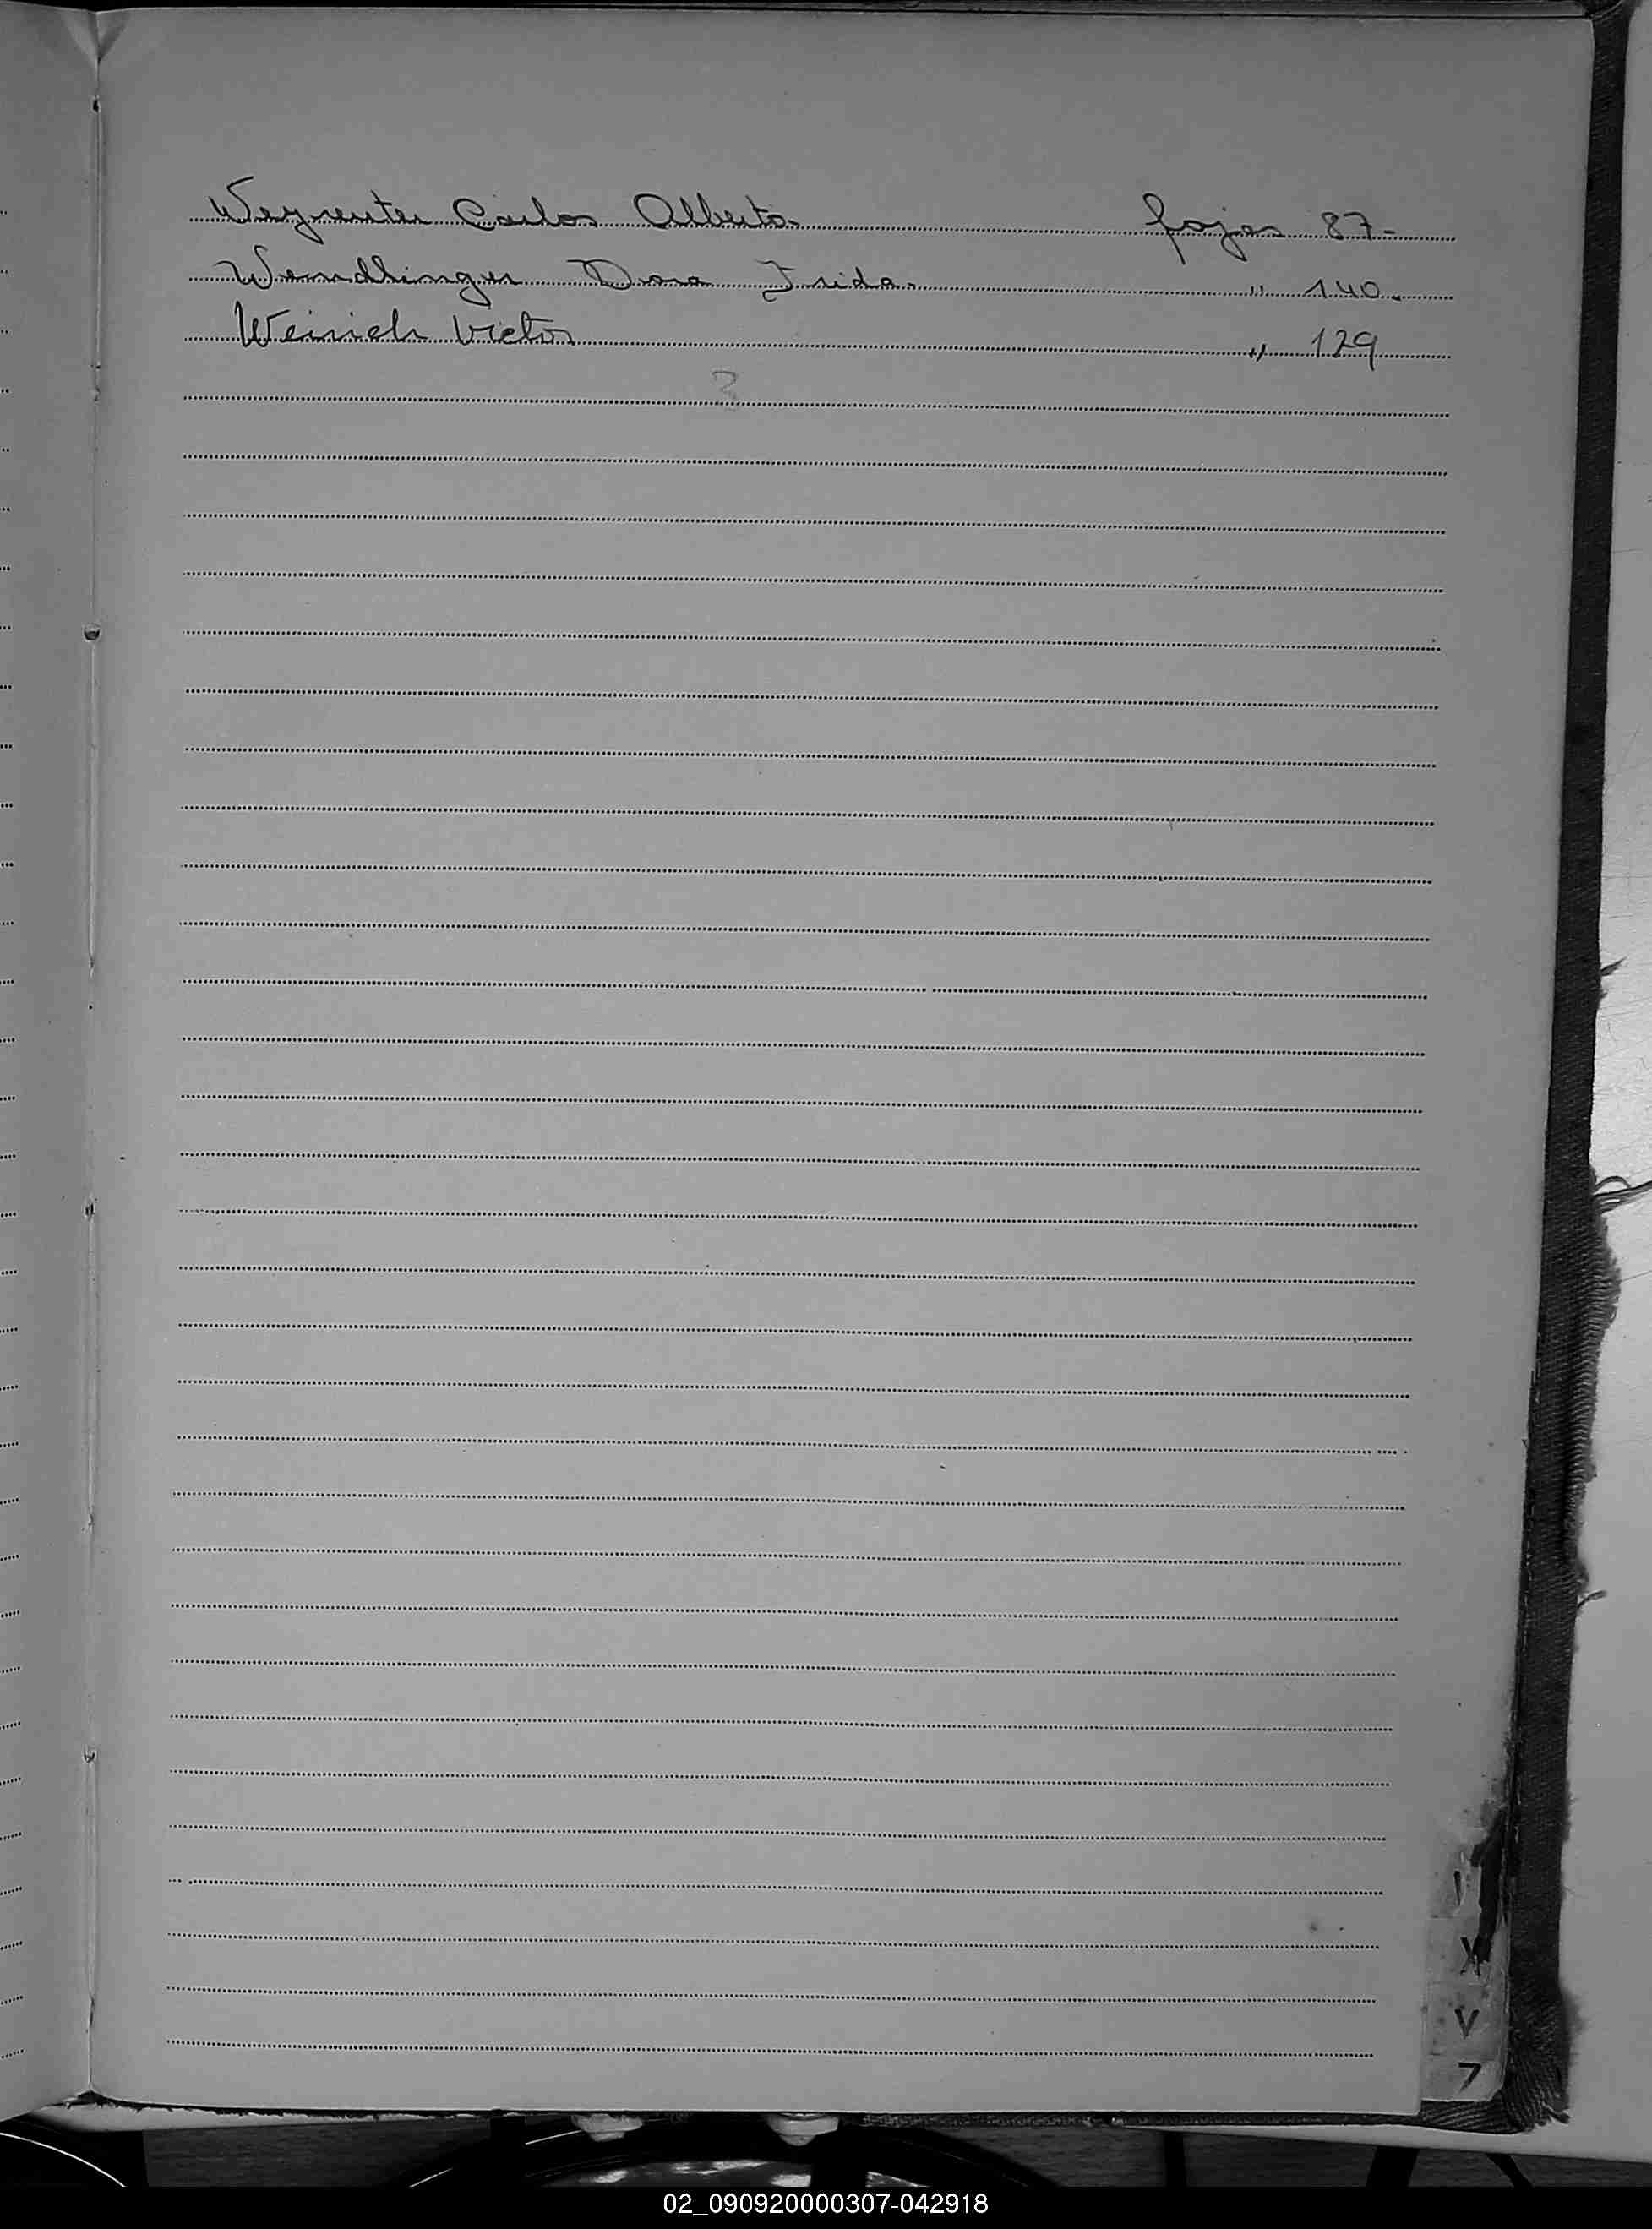 Weyreuter Carlos Alberto. fojas 87-
Wendlinger Dora Frida. " 140.
Weinich Victor " 129
3
X
V
Z
02_090920000307-042918